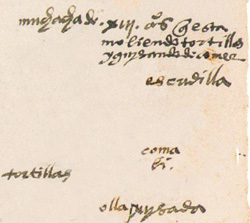 muchacha de . xiij . aºs q esta
moliendo tortillas
y guysando de comer
escudilla
coma
li.
tortillas
olla guysada